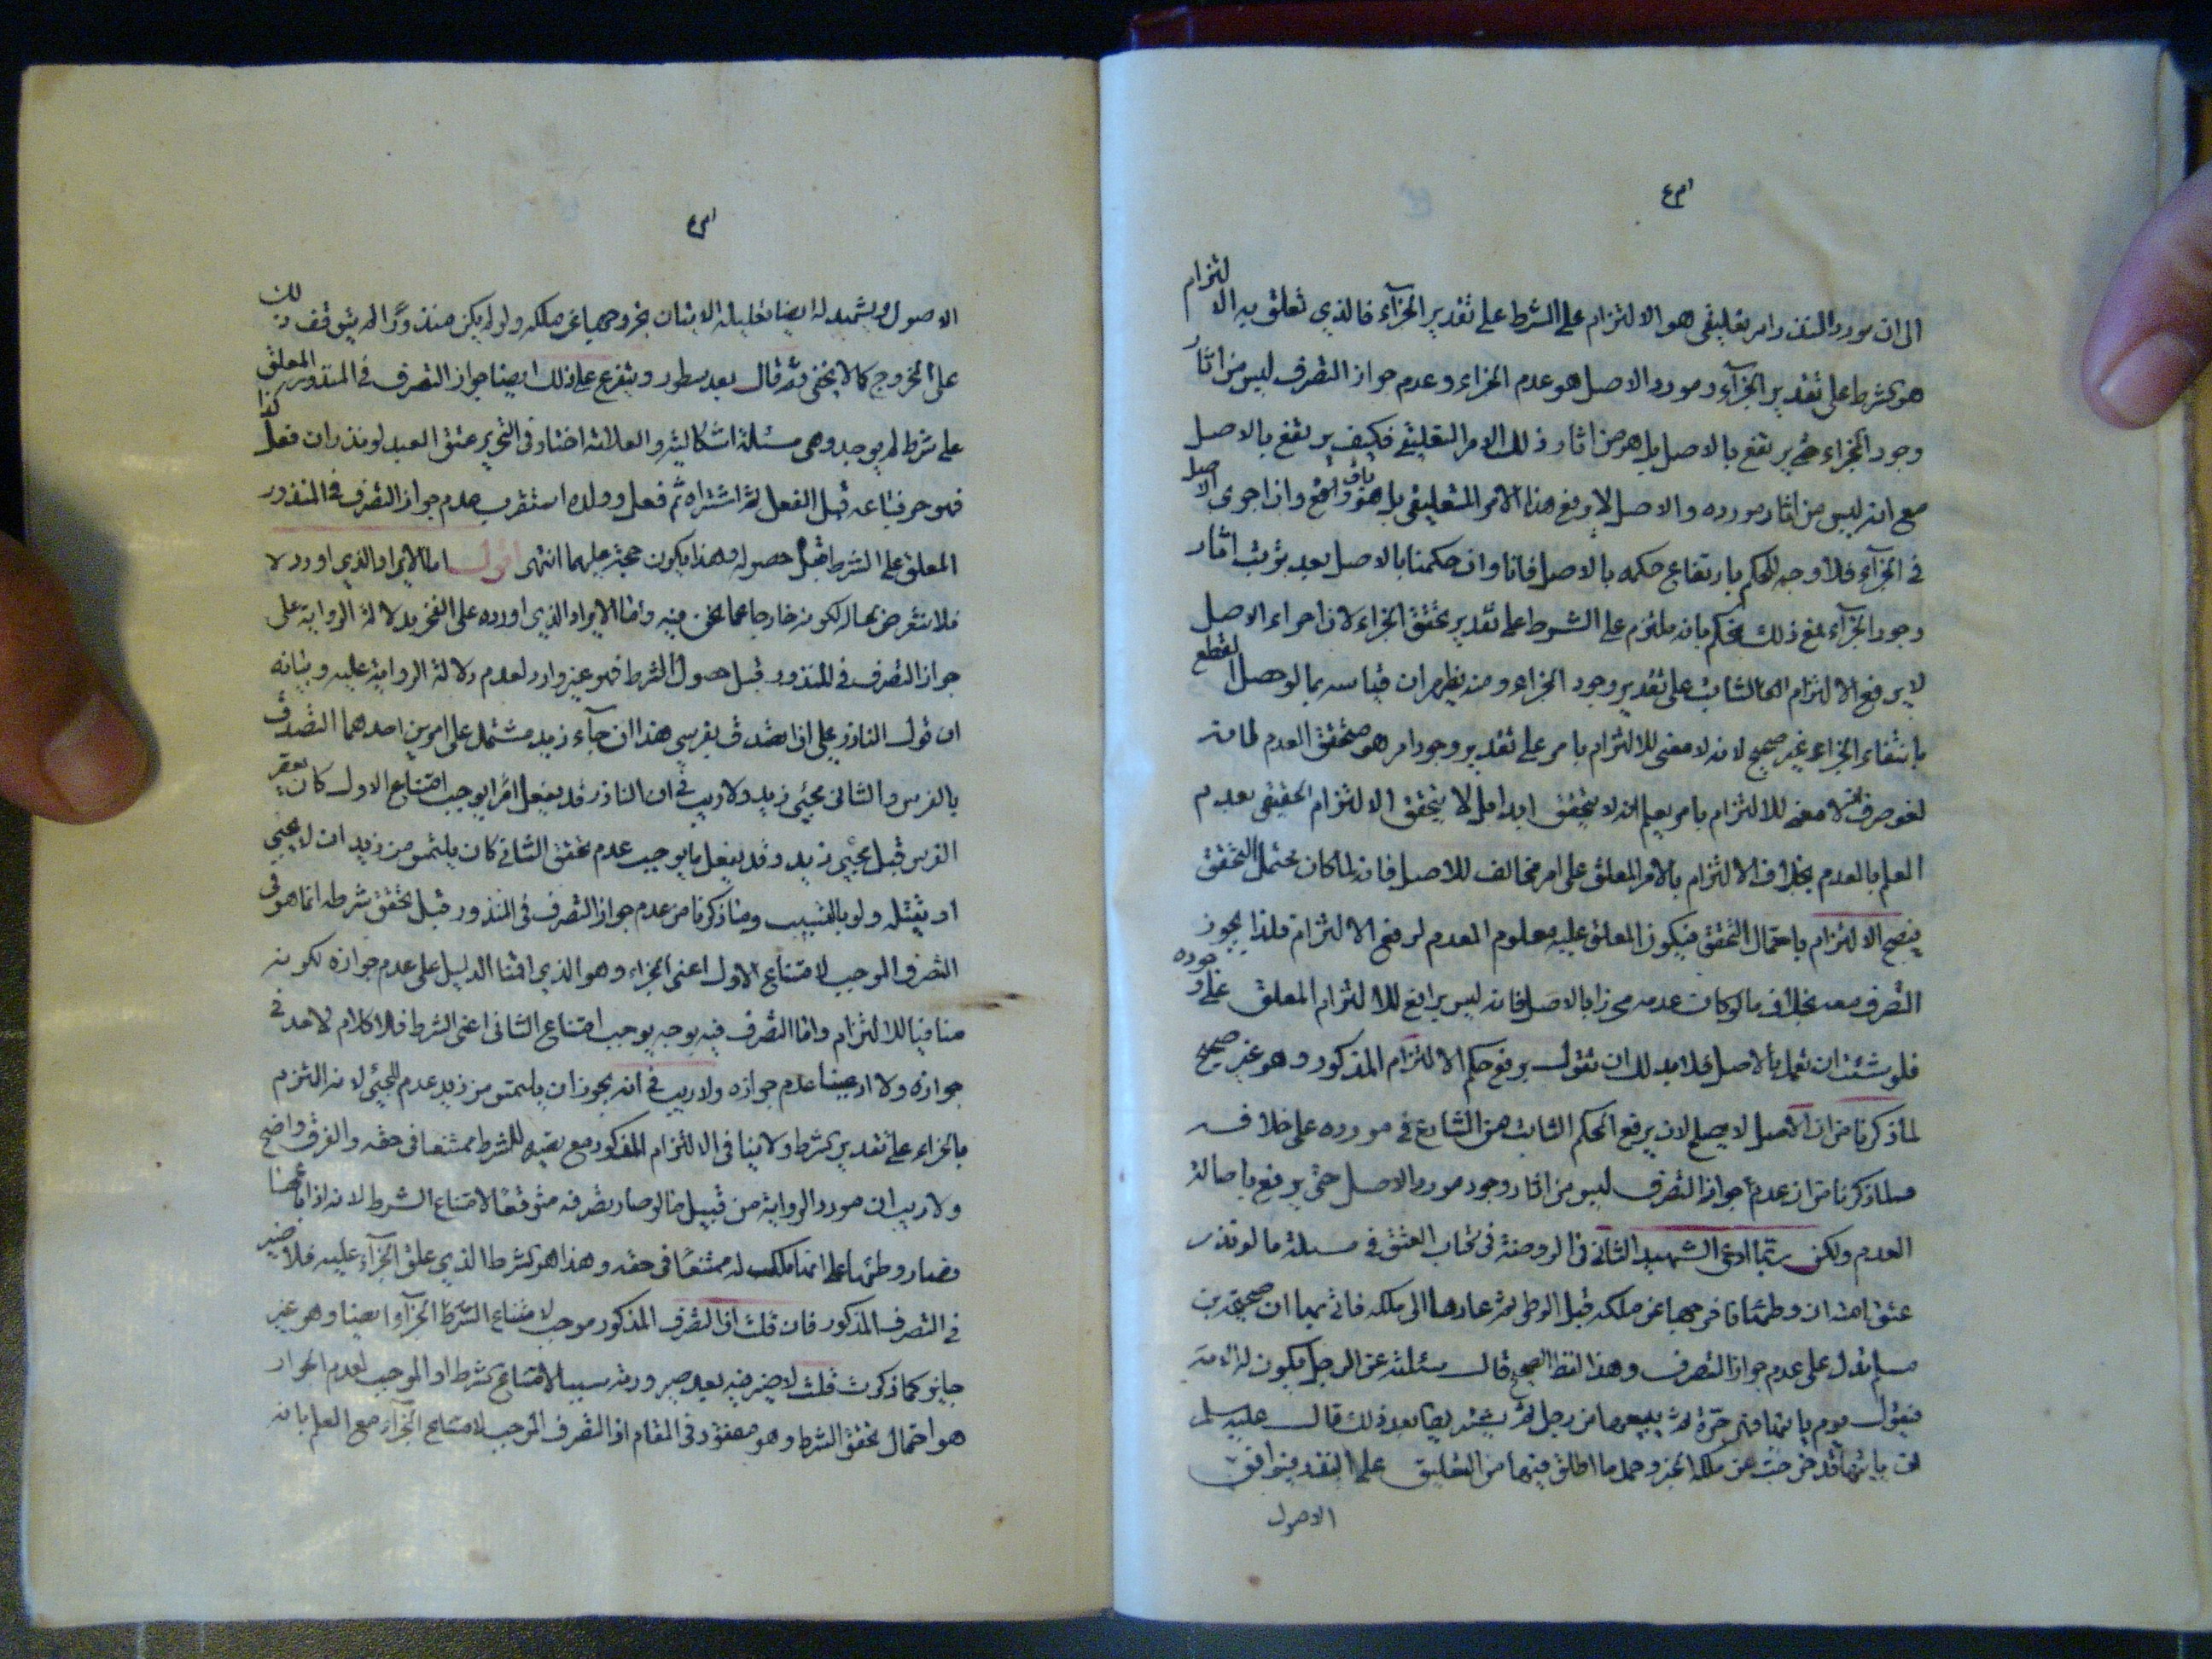 الى ان مورد النذر امر تعليقي هو الالتزام على الشرط على تقدير الجزآء فالذي تعلق به الالتزام
هو الشرط على تقدير الجزآء ومورد الاصل هو عدم الجزاء وعدم جواز التصرف ليس من اثار
وجود الجزاء حتى يرتفع بالاصل بل هو من اثار ذلك الامر التعليقي فكيف يرتفع بالاصل
مع انه ليس من اثار مورده والاصل لا يرفع هذا الامر التعليقي بل هو باق واذا جرى الاصل
في الجزآء فلا وجه للحكم بارتفاع حكمه بالاصل فانا وان حكمنا بالاصل بعدم ترتب اثار
وجود الجزآء فمع ذلك نحكم بانه ملتزم على الشرط على تقدير تحقق الجزاء لان اجراء الاصل
لا يرفع الالتزام الثابت على تقدير وجود الجزاء ومنه يظهر ان قياسه بما لو حصل القطع
بانتفاء الجزاء غير صحيح لانه لا معنى للالتزام بامر على تقدير وجود امر هو متحقق العدم لانه
لغو صرف لا معنى للالتزام بامر يعلم انه لا يتحقق ابدا بل لا يتحقق الالتزام الحقيقي بعدم
العلم بالعدم بخلاف الالتزام بالامر المعلق على امر مخالف للاصل فانه لما كان يحتمل التحقق
يصح الالتزام باحتمال التحقق فيكون المعلق عليه معلوم العدم لرفع الالتزام فلذا يجوز
التصرف معه بخلاف ما لو كان عدمه محرزا بالاصل فانه ليس برافع للالتزام المعلق على وجوده
فلو شئت ان تعمل بالاصل فلابد لك ان تقول برفع حكم الالتزام المذكور وهو غير صحيح
لما ذكرنا من ان الاصل لا يصلح لان يرفع الحكم الثابت من الشارع في مورده على خلافه
فلما ذكرنا من ان عدم جواز التصرف ليس من اثار وجود مورد الاصل حتى يرفع باصالة
العدم ولكن ربما ادعى الشهيد الثاني في الروضة في كتاب العتق في مسئلة ما لو نذر
عتق امته ان وطئها فاخرجها عن ملكه قبل الوطي ثم عادها الى ملكه فاتى بها ان صحيحة بن
مسلم تدل على عدم جواز التصرف وهذا لفظ الصحيح قال سئلته عن الرجل يكون له الامة
فيقول يوم ياتيها فهى حرة ثم يبيعها من رجل ثم يشتريها بعد ذلك قال عليه سلم
لا باس بان ياتيها قد خرجت عن ملكه الخ وحمل ما اطلق فيها من التعليق على النذر ليوافق
الاصول
الاصول ويشهد له ايضا تعليله الاتيان بخروجها عن ملكه ولو لم يكن منذورا لم يتوقف ذلك
على الخروج كما لا يخفى ثم قال بعد سطور ويتفرع على ذلك ايضا جواز التصرف في المنذور المعلق
على شرط لم يوجد وهى مسئلة اشكالية والعلامة اختار في التحرير عتق العبد لو نذر ان فعل كذا
فهو حر فباعه قبل الفعل ثم اشتراه ثم فعل وولده استقرب عدم جواز التصرف في المنذور
المعلق على الشرط قبل حصوله وهذا يكون حجة عليهما انتهى اقول اما الايراد الذي اورد لا
فلا نتعرض بها لكونه خارجا عما نحن فيه واما الايراد الذي اورده على الفخر بدلالة الرواية على
جواز التصرف في المنذور قبل حصول الشرط فهو غير وارد لعدم دلالة الرواية عليه وبيانه
ان قول الناذر على ان اتصدق بفرسي هذا ان جآء زيد مشتمل على امرين احدهما التصدق
بالفرس والثاني مجئي زيد ولا ريب في ان الناذر قد يفعل امرا يوجب امتناع الاول كان يعقر
الفرس قبل مجئي زيد وقد يفعل ما يوجب عدم تحقق الثاني كان يلتمس من زيد ان لا يجئ
او يقتله ولو بالتسبيب وما ذكرنا من عدم جواز التصرف في المنذور قبل تحقق شرطه انما هو في
التصرف الموجب لامتناع الاول اعنى الجزاء وهو الذي اقمنا الدليل على عدم جوازه لكونه
منافيا للالتزام واما التصرف فيه بوجه يوجب امتناع الثاني اعنى الشرط فلا كلام لاحد في
جوازه ولا ادعينا عدم جوازه ولا ريب في انه يجوز ان يلتمس من زيد عدم المجئي لانه التزم
بالجزاء على تقدير الشرط ولا ينافى الالتزام المذكور مع تصييره للشرط ممتنعا في حقه والفرق واضح
ولا ريب ان مورد الرواية من قبيل ما لو صار تصرفه متوقفا لامتناع الشرط لانه اذا باعها
فصار وطئها على انها ملك له ممتنعا في حقه وهذا هو الشرط الذي علق الجزآء عليه فلا ضير
في التصرف المذكور فان قلت ان التصرف المذكور موجب لامتناع الشرط الجزآء ايضا وهو غير
جايز كما ذكرت قلت لا ضير فيه بعد صيرورته سببا لامتناع الشرط اذ الموجب لعدم الجواز
هو احتمال تحقق الشرط وهو مفقود في المقام اذ التصرف الموجب لامتناع الجزآء مع العلم بانه